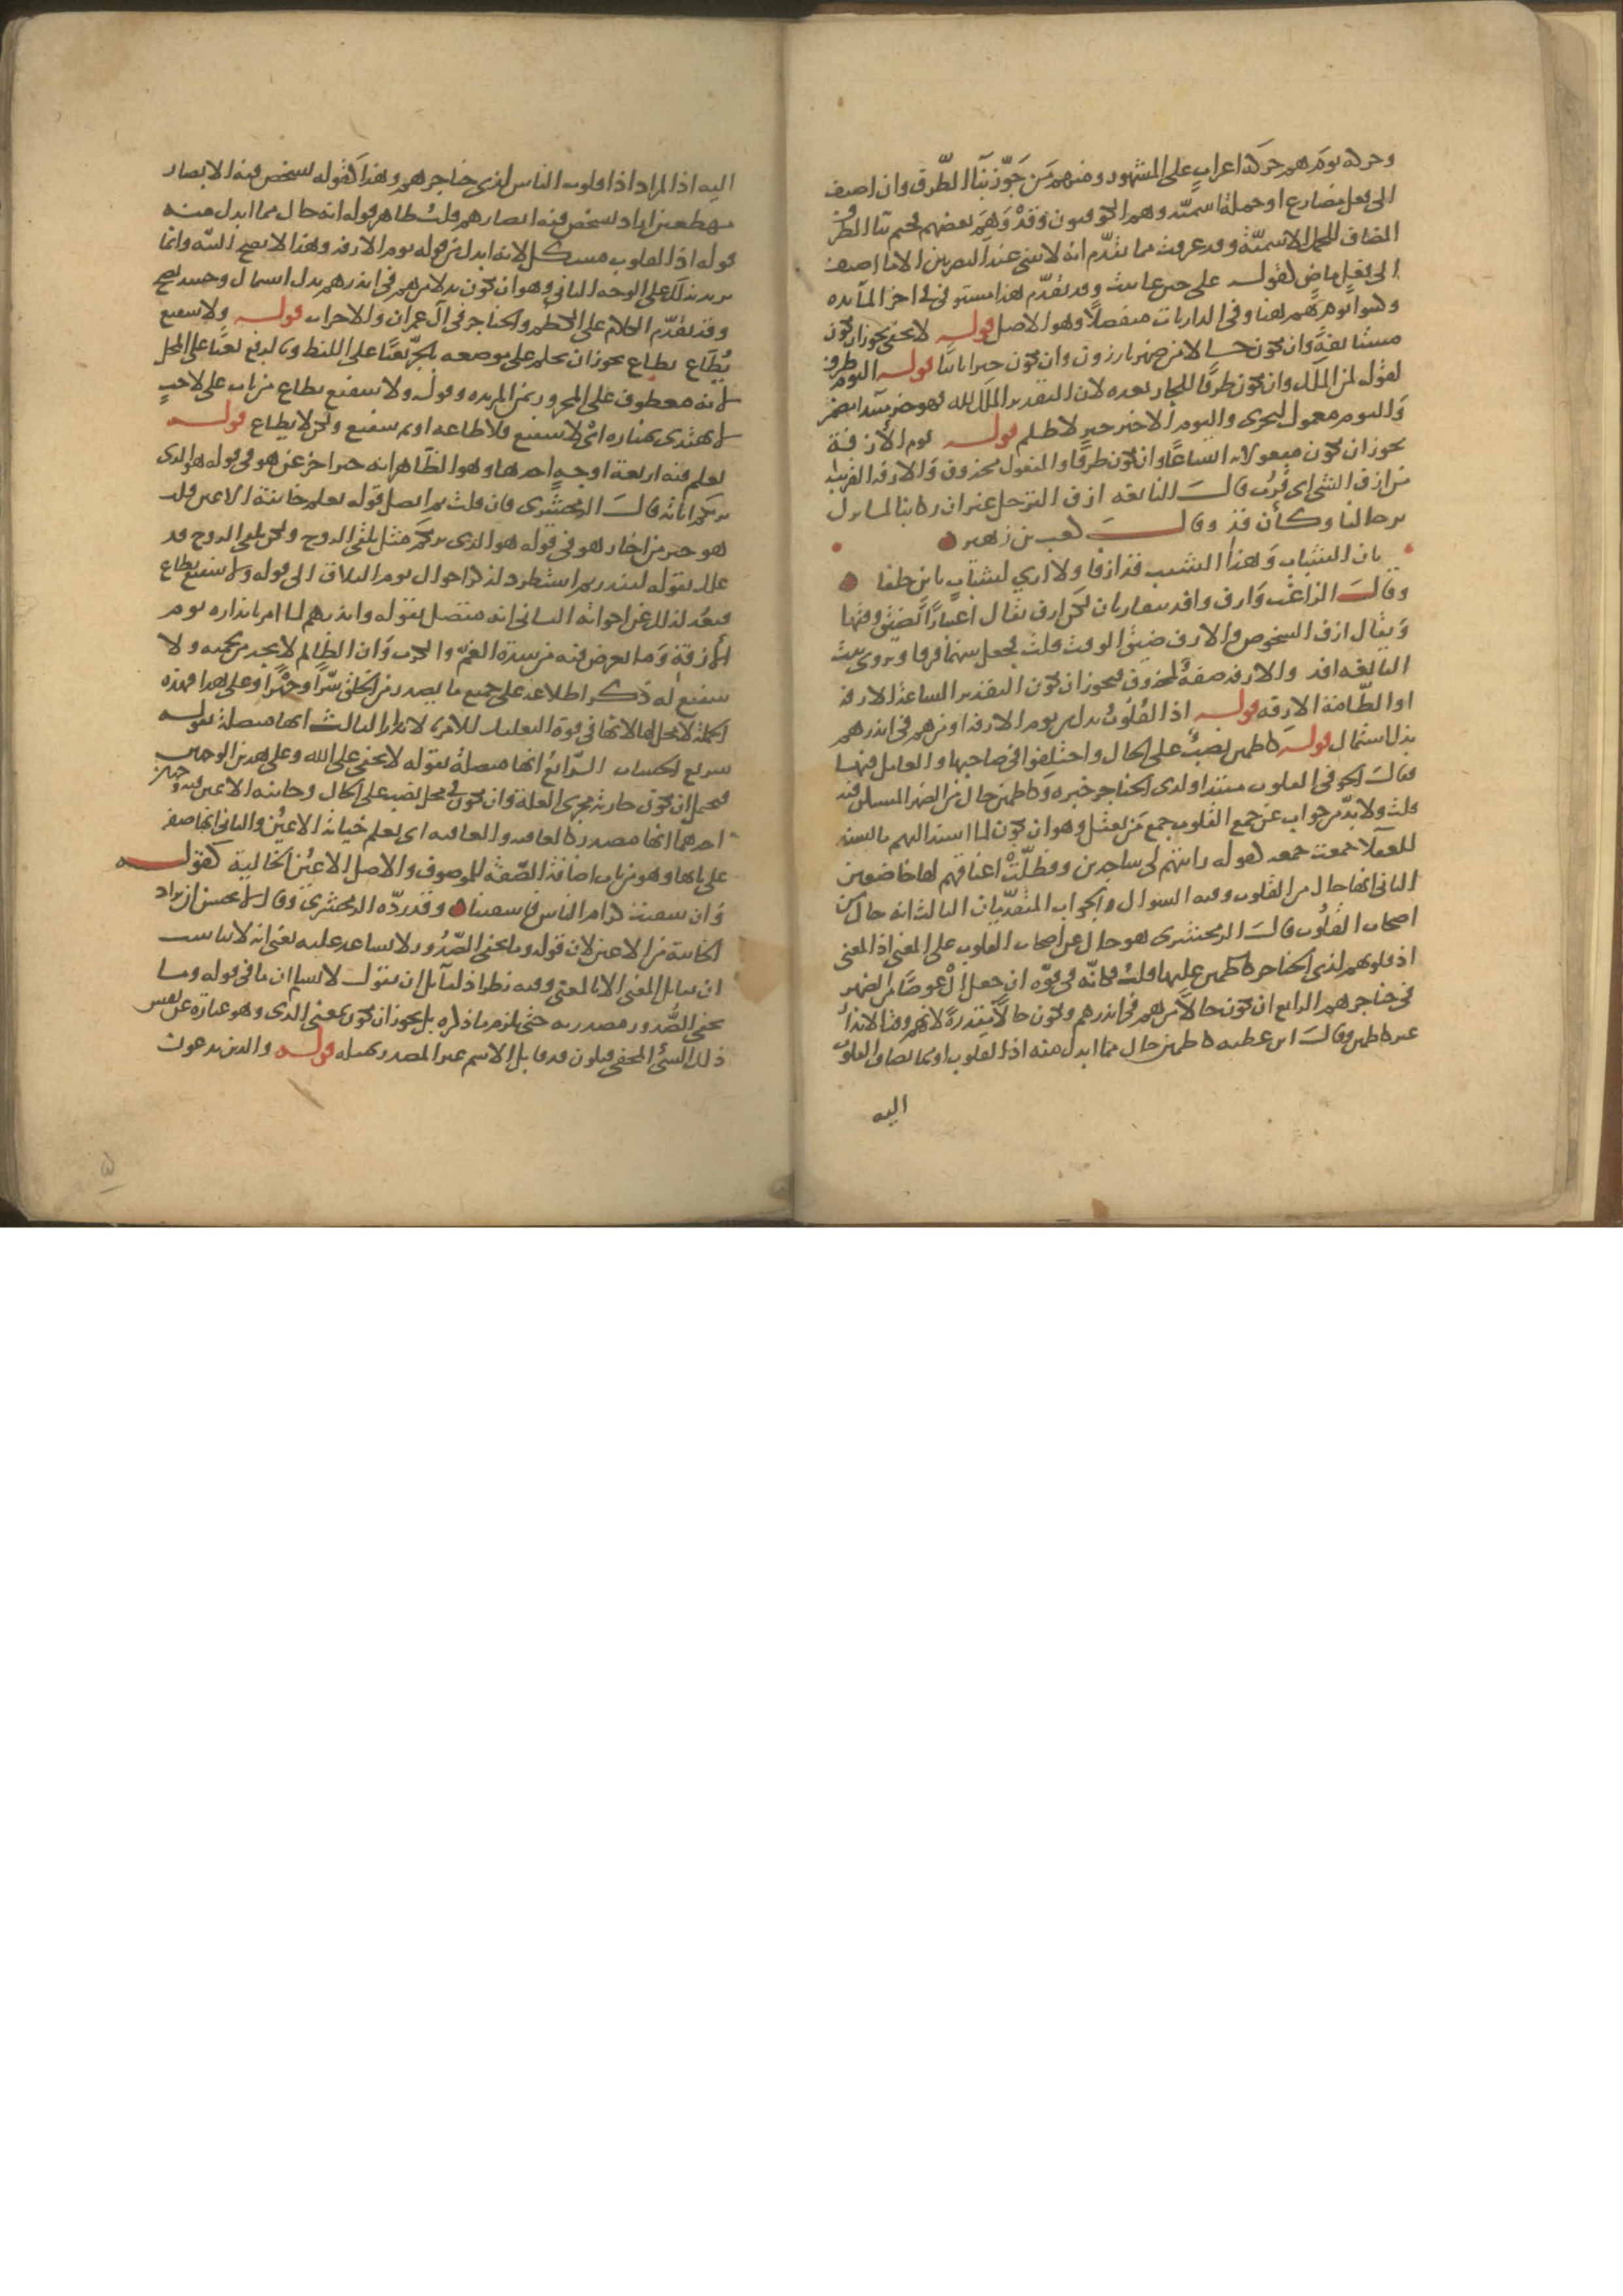 وحركة يوم هم حركة اعراب على المشهور ومنهم من جوّز بنآ الظّرف وان اضيف
الى فعل مضارع او جملة اسميّة وهم الكوفيون وقد وهم بعضهم فحتم بنا الظرف
المضاف للجمل الاسميّة وقد عرفت مما تقدّم انه لا يبنى عند البصريين الا ما اضيف
الى فعل ماض كقوله على حين عاتبت وقد تقدّم هذا مستوفى في اخر المآيده
وكتبوا يوم هم هنا وفي الذاريات منفصلًا وهو الاصل قوله لا يخفى يجوز ان تكون
مستانفة وان تكون حالا من ضمير بارزون وان تكون خبرا ثانيا قوله اليوم ظرف
لقوله لمن الملك وان يكون ظرفًا للجار بعده لان التقدير الملك لله فهو خبر مبتدا مضمر
واليوم معمول لتجزى واليوم الاخير خبر لا ظلم قوله يوم الآزفة
يجوز ان تكون مفعولا به اتساعًا وان تكون ظرفًا والمفعول محذوف والآزفة القريبة
من ازف الشي اى قرب قال النابغه ازف الترحل غير ان ركابنا لما تزل
برحالنا وكأن قد وقال كعب بن زهير
بان الشباب وهذا الشيب قد ازفا ولا ارى لشباب باين خلفا
وقال الراغب وازف وافد يتقاربان لكن ازف يقال اعتبارًا لضيق وقتها
ويقال ازف الشخوص والازف ضيق الوقت قلت فجعل بينهما فرقا ويروى بيت
النابغه افد والازفه صفة لمحذوف فيجوز ان تكون التقدير الساعة الازفة
او الطّامة الازفه قوله اذ القلوب بدل من يوم الازفه او من هم فى انذرهم
بدل اشتمال قوله كاظمين نصب على الحال واختلفوا فى صاحبها والعامل فيها
قال الحوفى القلوب مبتدا ولدى الحناجر خبره وكاظمين حال من الضمير المستكن فيه
قلت ولا بدّ من جواب عن جمع القلوب جمع من يعقل وهو ان يكون لما اسند اليهم ما يسند
للعقلآ جمعت جمعه كقوله رايتهم لى ساجدين وفظلّت اعناقهم لها خاضعين
الثانى انها حال من القلوب وفيه السوال والجواب المتقدّمان الثالث انه حال من
اصحاب القلوب قال الزمخشرى هو حال عن اصحاب القلوب على المعنى اذ المعنى
اذ قلوبهم لدى الحناجر كاظمين عليها قلت فكانّه فى قوّه ان جعل ال عوضًا من الضمير
فى حناجرهم الرابع ان تكون حالًا من هم فى انذرهم وتكون حالًا مقدرة لانهم وقت الانذار
غير كاظمين وقال ابن عطيه كاظمين حال مما ابدل منه اذ القلوب او مما تضاف القلوب
اليه
اليه اذ المراد اذ قلوب الناس لدى حناجرهم وهذا كقوله تشخص فيه الابصار
مهطعين اراد تشخص فيه ابصارهم قلت ظاهر قوله انه حال مما ابدل منه
قوله اذ القلوب مشكل لانه ابدل من قوله يوم الازفه وهذا لا يصح البتّه وانما
يريد بذلك على الوجه الثاني وهو ان تكون بدلا من هم فى انذرهم بدل اشتمال وحينئذ يصح
وقد تقدّم الكلام على الكظم والحناجر فى آل عمران والاحزاب قوله ولا شفيع
يُطاع يطاع يجوز ان يحكم على موضعه بالجرّ نعتًا على اللفظ وبالرفع نعتا على المحل
لانه معطوف على المجرور بمن المزيده وقوله ولا شفيع يطاع من باب على لاحب
لا يهتدى بمناره اىْ لا شفيع فلا طاعه او ثم شفيع ولكن لا يطاع قوله
يعلم فيه اربعة اوجهٍ احدها وهو الظّاهر انه خبر اخر عن هو فى قوله هو الذى
يريكم اياته قال الزمخشرى فان قلت بم اتصل قوله يعلم خاينة الاعين قلت
هو خبر من اخبار هو فى قوله هو الذى يريكم مثل يلقى الروح ولكن يلقى الروح قد
علل بقوله لينذر ثم استطرد لذكر احوال يوم التلاق الى قوله ولا شفيع يطاع
فبعُد لذلك عن اخواته الثانى انه متصل بقوله وانذرهم لما امر بانذاره يوم
الآزفة وما يعرض فيه من شدة الغمّ والكرب وان الظالم لا يجد من يحميه ولا
شفيع له ذكر اطلاعه على جميع ما يصدر من الخلق سّرًا وجهْرًا وعلى هذا فهذه
الجملة لا محل لها لانها فى قوة التعليل للامر بالانذار الثالث انها متصلة بقوله
سريع الحساب الرّابع انها متصلة بقوله لا يخفى على الله وعلى هذين الوجهين
فيحتمل ان تكون جارية مجرى العلة وان تكون فى محل نصب على الحال وخاينه الاعين فيه وجهان
احدهما انها مصدر كالعافيه والعاقبه اى يعلم خيانة الاعيُن والثانى انها صفة
على بابها وهو من باب اضافة الصّفة للموصوف والاصل الاعيُن الخاينة كقوله
وان سقيت كرام الناس فاسقينا وقد ردّه الزمخشرى وقال لا يحسن ان يراد
الخاينة من الاعين لان قوله وما تخفى الصّدور لا يساعد عليه يعنى انه لا يناسب
ان يقابل المعنى الا بالمعنى وفيه نظر اذ لقآيل ان يقول لا نسلم ان ما فى قوله وما
تخفى الصُّدور مصدريه حتى يلزم ما ذكره بل يجوز ان تكون بمعنى الذى وهو عبارة عن نفس
ذلك الشئ المخفى فيكون قد قابل الاسم غير المصدر بمثله قوله والذين يدعون